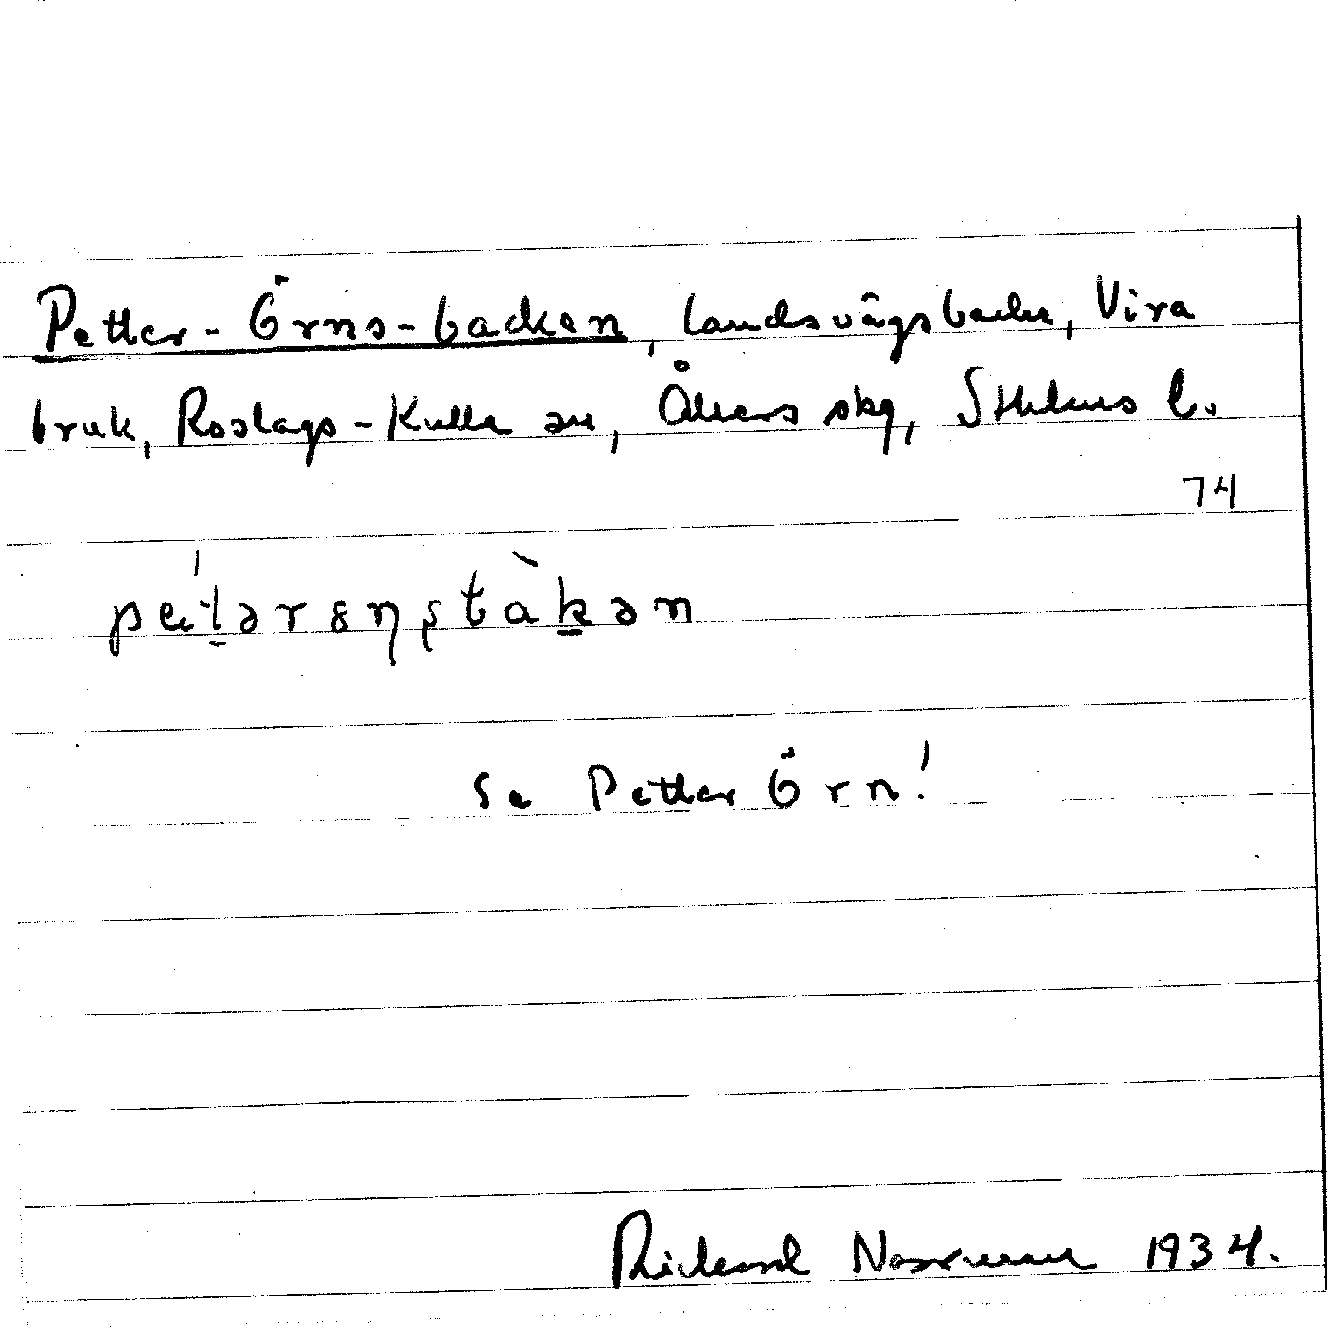 Petter-Örns-backen, landsvägsbacke, Vira
bruk, Roslags-Kulla sn, Åkers skg, Sthlms l.
74
Se Petter Örn!
Rickard Norrman 1934.